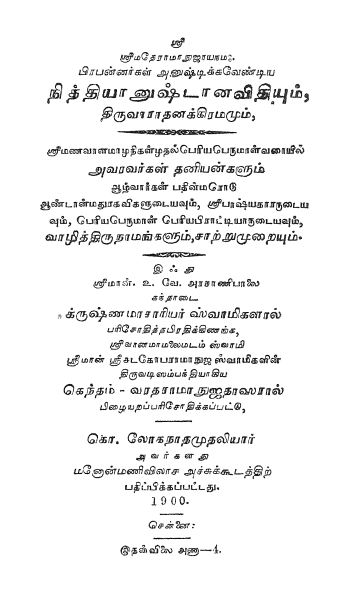 ஸ்ரீ
ஸ்ரீமதேராமாநுஜாயநமஃ.
பிரபன்னர்கள் அனுஷ்டிக்கவேண்டிய
நித்தியானுஷ்டானவிதியும்,
திருவாராதனக்கிரமமும்,
ஸ்ரீமணவாளமாமுநிகள்முதல்பெரியபெருமாள்வரையில்
அவரவர்கள் தனியன்களும்
ஆழ்வார்கள் பதின்மரோடு
ஆண்டாள்மதுரகவிகளுடையவும், ஸ்ரீபாஷ்யகாரருடைய
வும், பெரியபெருமாள் பெரியபிராட்டியாருடையவும்,
வாழித்திருநாமங்களும், சாற்றுமுறையும்.
இஃது
ஸ்ரீமான். உ. வே. அரசாணிபாலை
கந்தாடை
க்ருஷ்ணமாசாரியர் ஸ்வாமிகளால்
பரிசோதித்தபிரதிக்கிணங்க,
ஸ்ரீவானமாமலைமடம் ஸ்வாமி
ஸ்ரீமான் ஸ்ரீசடகோபராமாநுஜ ஸ்வாமிகளின்
திருவடிஸம்பந்தியாகிய
கெந்தம் - வரதராமாநுஜதாஸரால்
பிழையறப்பரிசோதிக்கப்பட்டு,
கொ. லோகநாதமுதலியார்
அவர்களது
மனோன்மணிவிலாச அச்சுக்கூடத்திற்
பதிப்பிக்கப்பட்டது.
1900.
சென்னை:
இதன்விலை அணா—4.